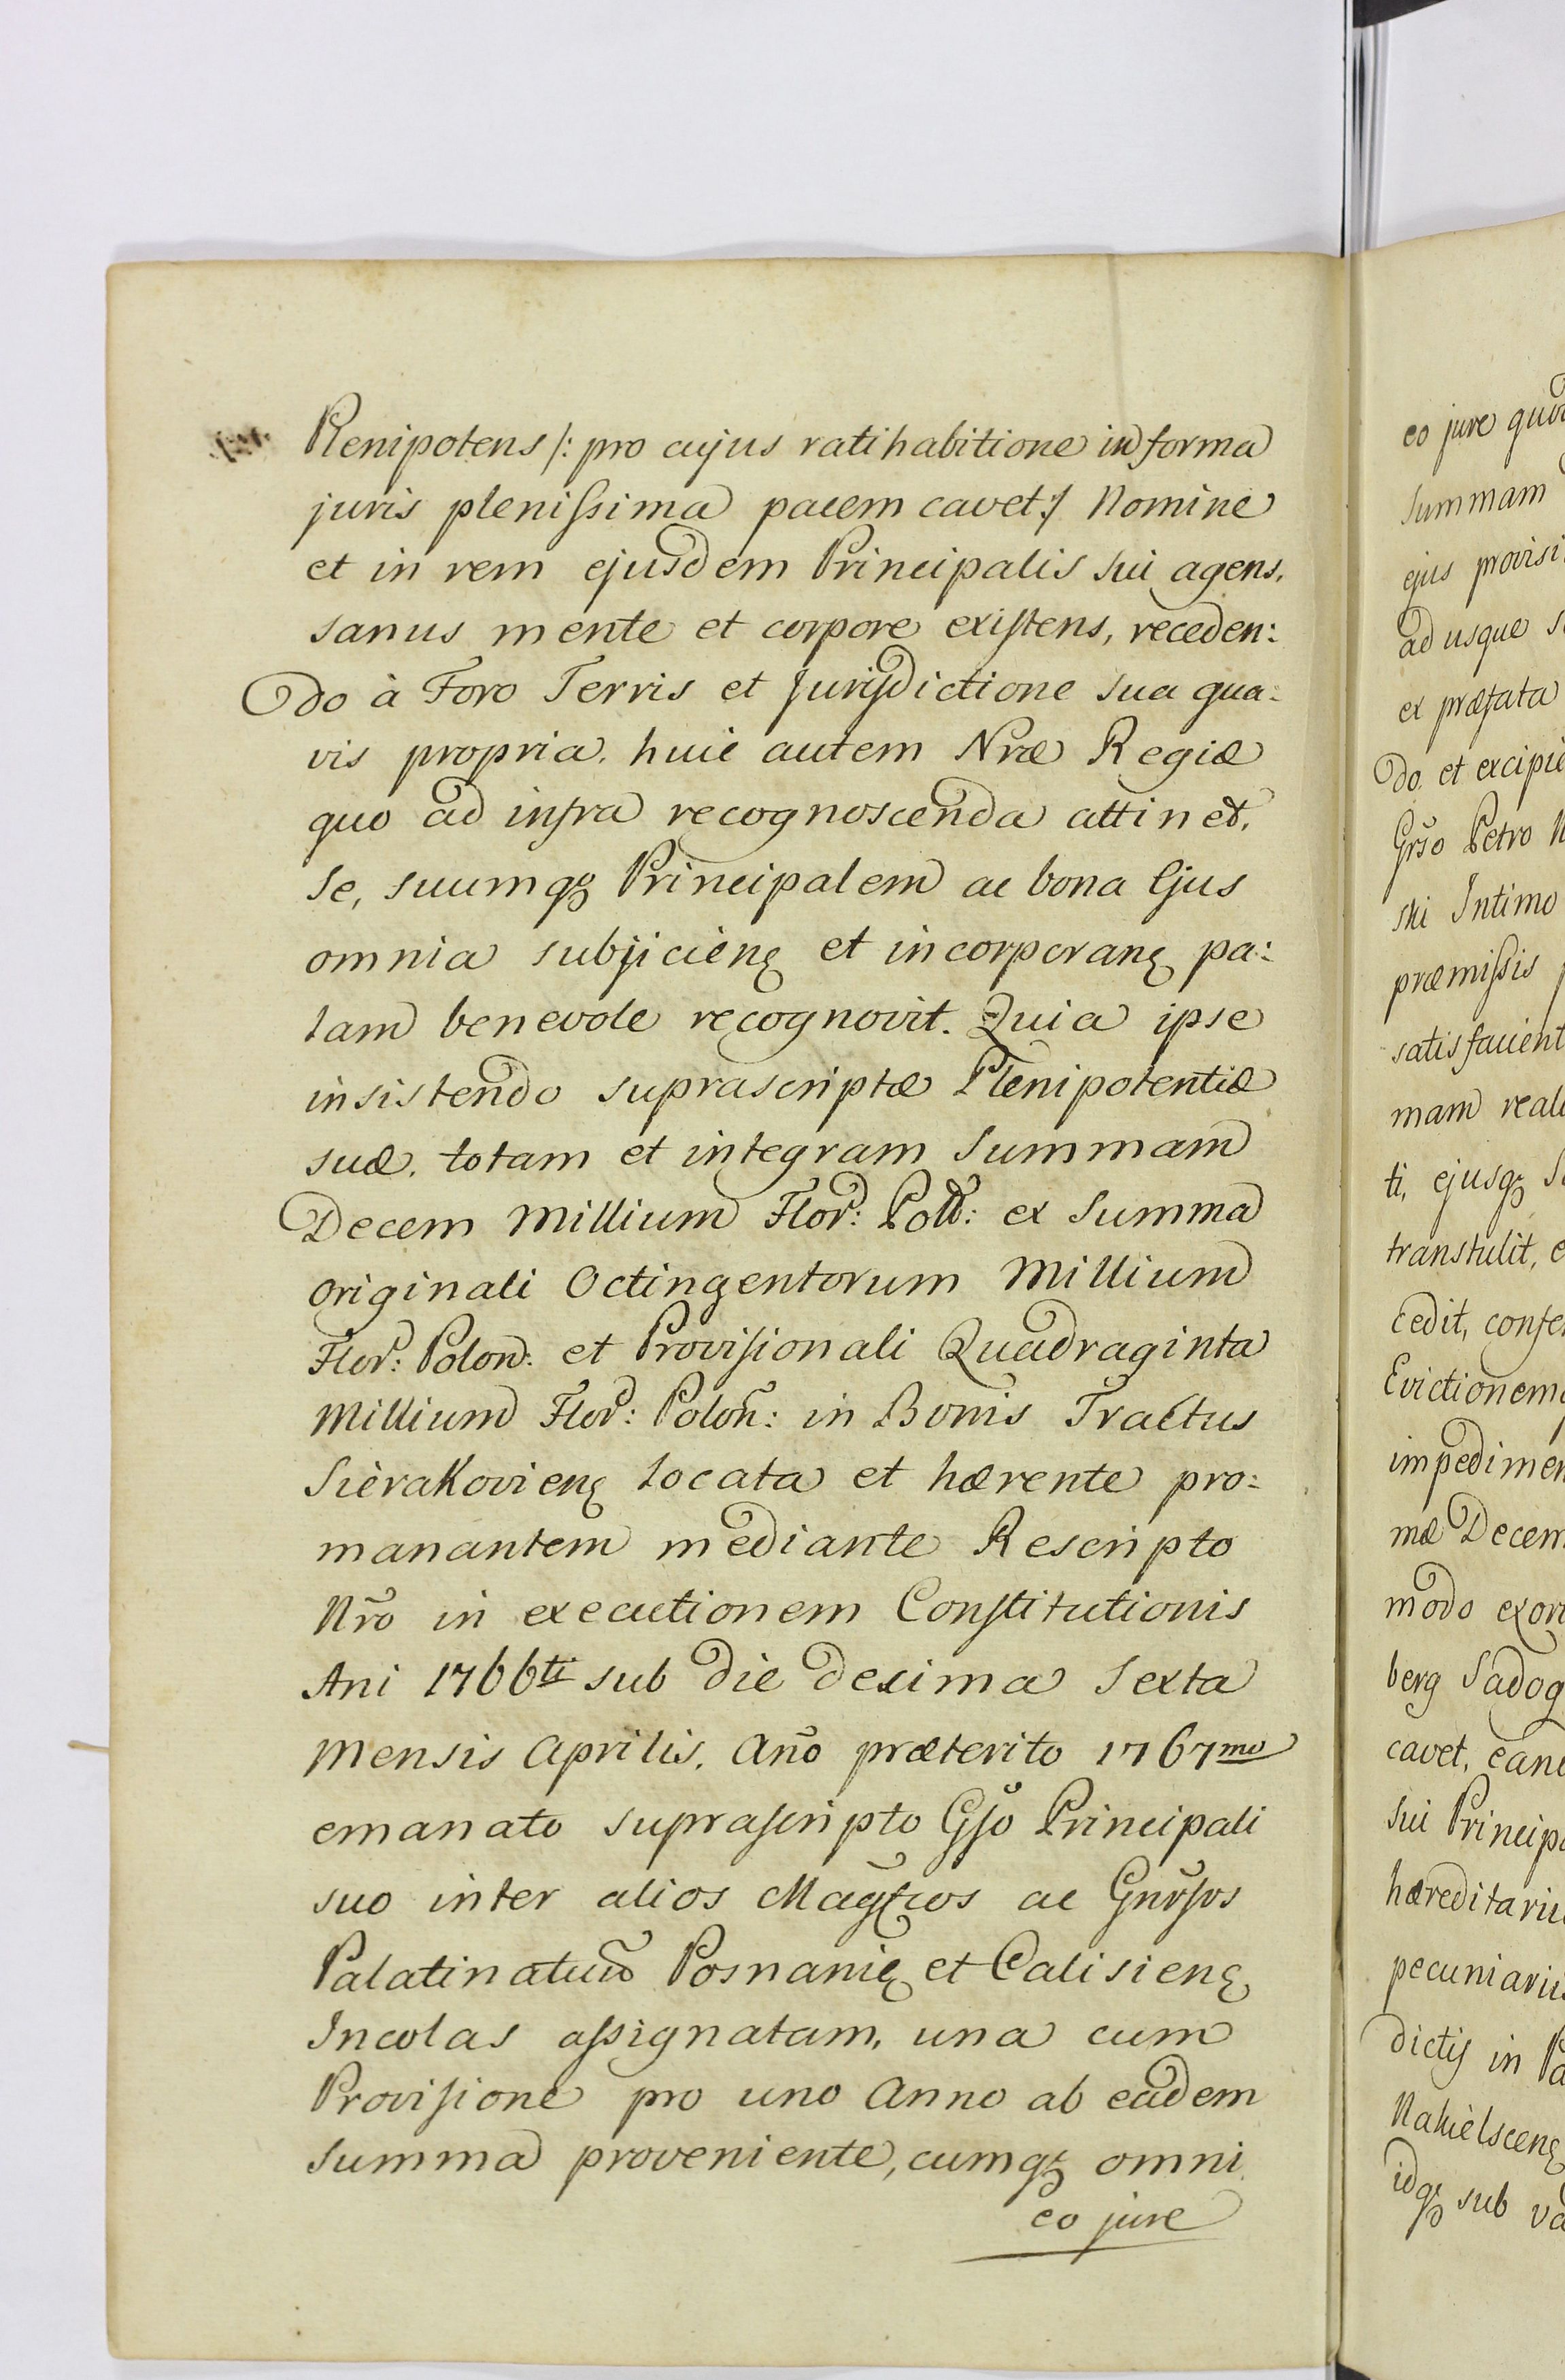 Plenipotens /: pro cujus ratihabitione in forma
juris plenissima pacem cavet :/ Nomine
et in rem ejusdem Principalis sui agens,
sanus mente et corpore existens, receden:
do à Foro Terris et Jurisdictione sua qua:
vis propria, huic autem Nræ Regiæ
quo ad infra recognoscenda attinet,
se, suumqȝ Principalem ac bona Ejus
omnia subjicieng et incorporang pa:
lam benevole recognovit. Quia ipse
insistendo suprascriptæ Plenipotentiæ
suæ, totam et integram Summam
Decem Millium Flor: Poll: ex Summa
Originali Octingentorum Millium
Flor: Polon: et Provisionali Quadraginta
Millium Flor: Polon̄: in Bonis Tractus
Sierakovieng locata et hærente pro:
manantem mediante Rescripto
Nr̄o in executionem Constitutionis
Ani 1766ti sub die decima sexta
Mensis Aprilis, An̄o præterito 1767mo
emanato suprascripto Gso Principali
suo inter alios Magcos ac Gnrsos
Palatinatuum Posnanię et Calisieng
Incolas assignatam, una cum
Provisione pro uno Anno ab eadem
Summa proveniente, cumqȝ omni
eo jure
eo jure
Summam
ejus
ad usque
ex præfata
do, et
Grs̄o Petro
ski Intimo
præmissis
mam
ti, ejusqȝ
transtulit,
Cedit,
mæ
modo
berg
cavet,
sui
dictis in
idqȝ sub